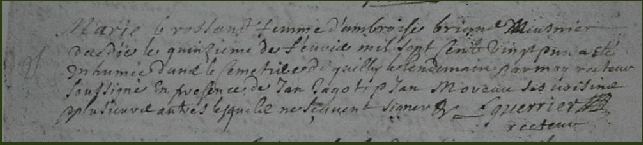 Marie femme d'ambroise meusnier
decedée le quinzieme de feuvrie mil sept cent vingt un a esté
inhumée dans le cemetiere de quilly le lendemain par moy recteur
soussigné en presence de Jan Jan Moreau ses voisins
plusieurs autres lesquels ne sçavent signer L guerrier
recteur